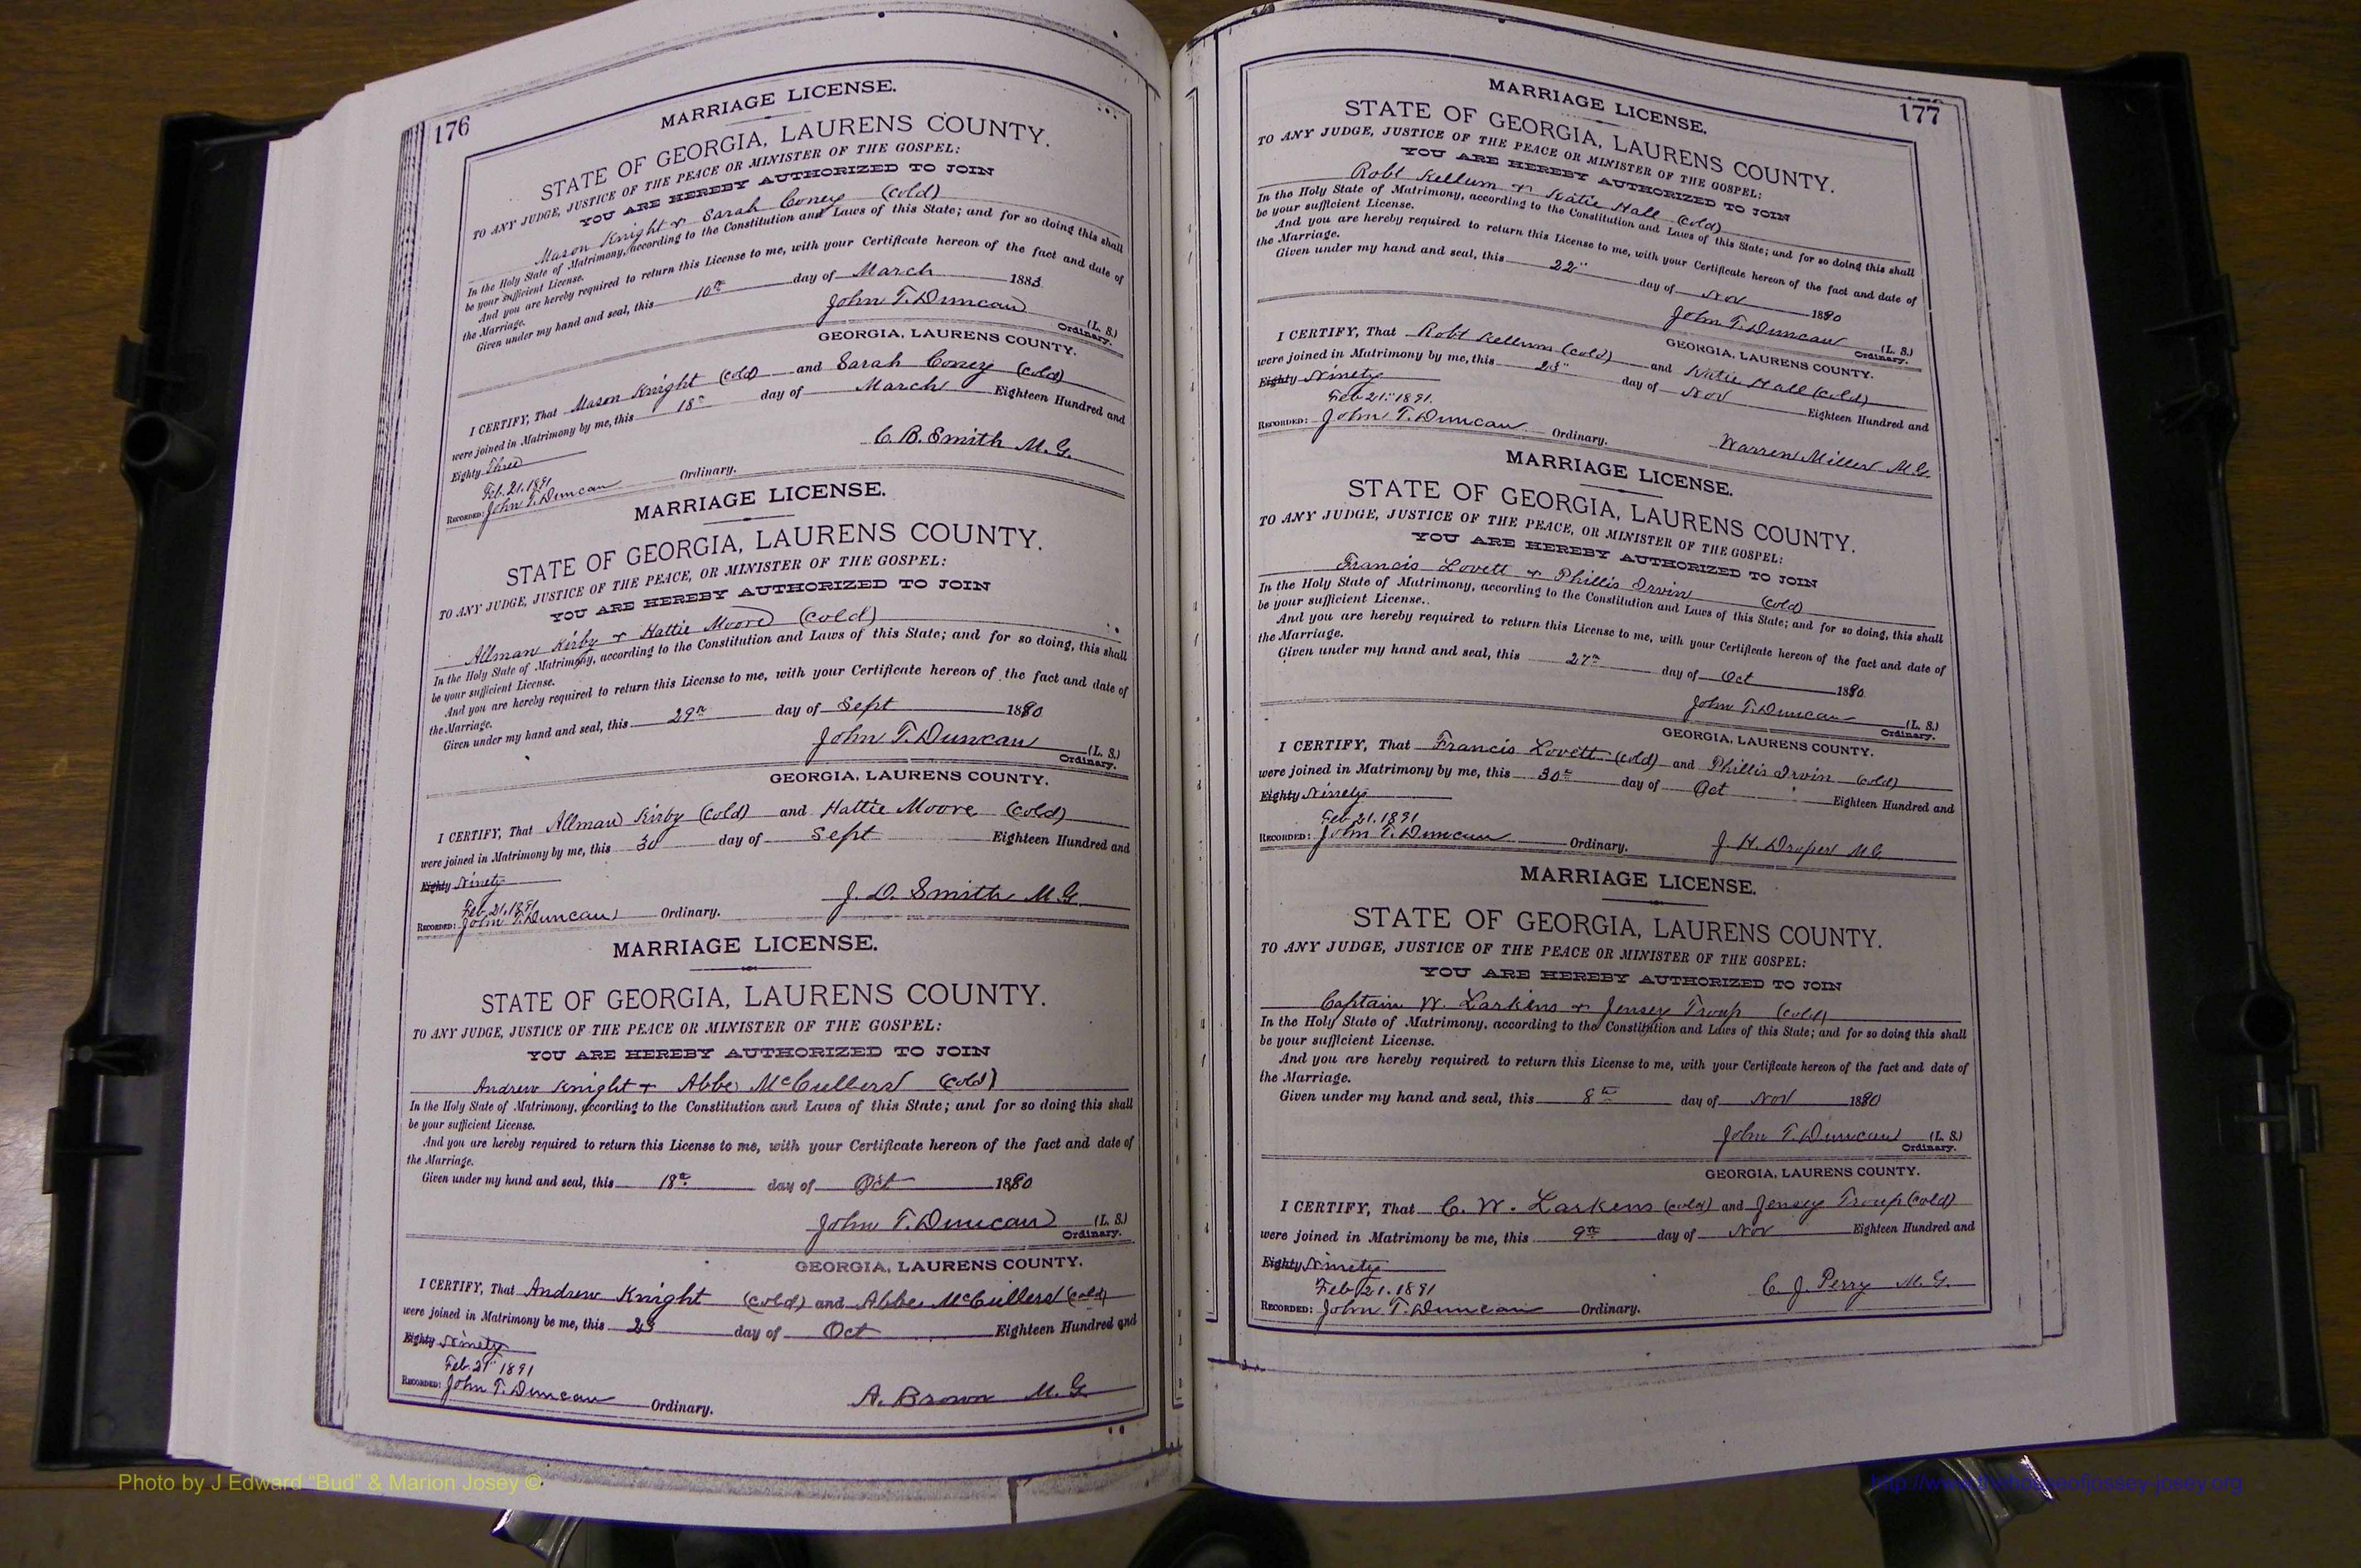 176
MARRIAGE LICENSE.
STATE OF GEORGIA, LAURENS COUNTY.
TO ANY JUDGE, JUSTICE OF THE PEACE OR MINISTER OF THE GOSPEL:
YOU ARE HEREBY AUTHORIZED TO JOIN
Mason Knight & Sarah Coney (Cold)
In the Holy State of Matrimony, according to the Constitution and Laws of this State; and for so doing this shall
be your sufficient License.
And you are hereby required to return this License to me, with your Certificate hereon of the fact and date of
the Marriage.
Given under my hand and seal, this 10th day of March 1883
John T. Duncan (L. S.)
Ordinary.
GEORGIA, LAURENS COUNTY.
I CERTIFY, That Mason Knight (Cold) and Sarah Coney (Cold)
were joined in Matrimony by me, this 18th day of March Eighteen Hundred and
Eighty Three
C. B. Smith M. G.
Feb. 21. 1891
RECORDED: John T. Duncan Ordinary.
MARRIAGE LICENSE.
STATE OF GEORGIA, LAURENS COUNTY.
TO ANY JUDGE, JUSTICE OF THE PEACE, OR MINISTER OF THE GOSPEL:
YOU ARE HEREBY AUTHORIZED TO JOIN
Allman Kirby & Hattie Moore (Cold)
In the Holy State of Matrimony, according to the Constitution and Laws of this State; and for so doing, this shall
be your sufficient License.
And you are hereby required to return this License to me, with your Certificate hereon of the fact and date of
the Marriage.
Given under my hand and seal, this 29th day of Sept 1890
John T. Duncan (L. S.)
Ordinary.
GEORGIA, LAURENS COUNTY.
I CERTIFY, That Allman Kirby (Cold) and Hattie Moore (Cold)
were joined in Matrimony by me, this 30 day of Sept Eighteen Hundred and
Eighty Ninety
J. D. Smith M. G.
Feb. 21. 1891
RECORDED: John T. Duncan Ordinary.
MARRIAGE LICENSE.
STATE OF GEORGIA, LAURENS COUNTY.
TO ANY JUDGE, JUSTICE OF THE PEACE OR MINISTER OF THE GOSPEL:
YOU ARE HEREBY AUTHORIZED TO JOIN
Andrew Knight & Abbe McCullers (Cold)
In the Holy State of Matrimony, according to the Constitution and Laws of this State; and for so doing this shall
be your sufficient License.
And you are hereby required to return this License to me, with your Certificate hereon of the fact and date of
the Marriage.
Given under my hand and seal, this 18th day of Oct 1890
John T. Duncan (L. S.)
Ordinary.
GEORGIA, LAURENS COUNTY.
I CERTIFY, That Andrew Knight (Cold) and Abbe McCullers (Cold)
were joined in Matrimony be me, this 23 day of Oct Eighteen Hundred and
Eighty Ninety
Feb 21" 1891
RECORDED: John T. Duncan Ordinary.
A. Brown M. G.
177
MARRIAGE LICENSE.
STATE OF GEORGIA, LAURENS COUNTY.
TO ANY JUDGE, JUSTICE OF THE PEACE OR MINISTER OF THE GOSPEL:
YOU ARE HEREBY AUTHORIZED TO JOIN
Robt Kellum & Katie Hall (Cold)
In the Holy State of Matrimony, according to the Constitution and Laws of this State; and for so doing this shall
be your sufficient License.
And you are hereby required to return this License to me, with your Certificate hereon of the fact and date of
the Marriage.
Given under my hand and seal, this 22" day of Nov 1890
John T. Duncan (L. S.)
Ordinary.
GEORGIA, LAURENS COUNTY.
I CERTIFY, That Robt Kellum (Cold) and Katie Hall (Cold)
were joined in Matrimony by me, this 23" day of Nov Eighteen Hundred and
Eighty Ninety
Feb 21" 1891.
RECORDED: John T. Duncan Ordinary.
Warren Miller M.G.
MARRIAGE LICENSE.
STATE OF GEORGIA, LAURENS COUNTY.
TO ANY JUDGE, JUSTICE OF THE PEACE, OR MINISTER OF THE GOSPEL:
YOU ARE HEREBY AUTHORIZED TO JOIN
Francis Lovett & Phillis Irvin (Cold)
In the Holy State of Matrimony, according to the Constitution and Laws of this State; and for so doing, this shall
be your sufficient License.
And you are hereby required to return this License to me, with your Certificate hereon of the fact and date of
the Marriage.
Given under my hand and seal, this 27th day of Oct 1890
John T. Duncan (L. S.)
Ordinary.
GEORGIA, LAURENS COUNTY.
I CERTIFY, That Francis Lovett (Cold) and Phillis Irvin (Cold)
were joined in Matrimony by me, this 30th day of Oct Eighteen Hundred and
Eighty Ninety
Feb. 21. 1891
RECORDED: John T. Duncan Ordinary.
J. H. Draper M.G.
MARRIAGE LICENSE.
STATE OF GEORGIA, LAURENS COUNTY.
TO ANY JUDGE, JUSTICE OF THE PEACE OR MINISTER OF THE GOSPEL:
YOU ARE HEREBY AUTHORIZED TO JOIN
Captain W. Larkins & Jensey Troup (Cold)
In the Holy State of Matrimony, according to the Constitution and Laws of this State; and for so doing this shall
be your sufficient License.
And you are hereby required to return this License to me, with your Certificate hereon of the fact and date of
the Marriage.
Given under my hand and seal, this 8th day of Nov 1890
John T. Duncan (L. S.)
Ordinary.
GEORGIA, LAURENS COUNTY.
I CERTIFY, That C. W. Larkens (Cold) and Jensey Troup (Cold)
were joined in Matrimony be me, this 9th day of Nov Eighteen Hundred and
Eighty Ninety
C. J. Perry M. G.
Feb 21. 1891
RECORDED: John T. Duncan Ordinary.
Photo by J Edward "Bud" & Marion Josey ©
http://www.thehouseofjossey-josey.org